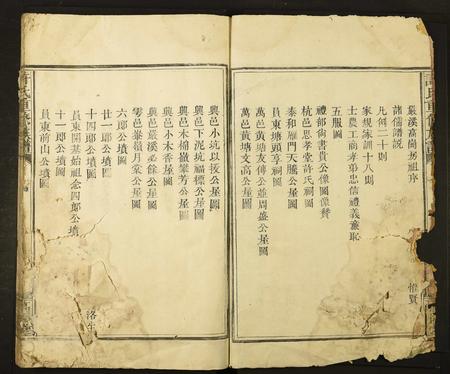 嚴溪高尚易祖序
諸儒譜說
凡例二十則
家規家訓十八則
士農工商孝弟忠信禮義廉恥
五服圖
禮部尚書貴公像圖像贊
杭邑思孝堂許氏祠圖
泰和雁門天騰公屋圖
員東塘頭享祠圖
萬邑黃塘友傳公並周盛公屋圖
萬邑黃塘文高公屋圖
惟賢
興邑小坑以援公屋圖
興邑下泥坑福標公屋圖
興邑木棉徹攀芳公屋圖
興邑小木香屋圖
興邑嚴溪必餘公屋圖
雩邑峯嶺月棠公屋圖
六郎公墳圖
廿一郎公墳圖
十四郎公墳圖
員東開基始祖念四郎公墳
十一郎公墳圖
員東前山公墳圖
洛生